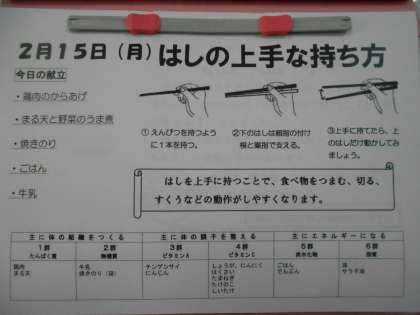 2月15日（月）はしの上手な持ち方
今日の献立
・鶏肉のからあげ
・まる天と野菜のうま煮
・焼きのり
・ごはん
・牛乳
①えんぴつを持つように1本を持つ。
②下のはしは親指の付け根と薬指で支える。
③上手に持てたら、上のはしだけ動かしてみましょう。
はしを上手に持つことで、食べ物をつまむ、切る、
すくうなどの動作がしやすくなります。
主に体の組織をつくる
主に体の調子を整える
主にエネルギーになる
1群 たんぱく質
2群 無機質
3群 ビタミンA
4群 ビタミンC
5群 炭水化物
6群 脂質
鶏肉
まる天
牛乳
焼きのり（袋）
チンゲンサイ
にんじん
しょうが、にんにく
はくさい
たまねぎ
たけのこ
しいたけ
ごはん
でんぷん
油
サラダ油